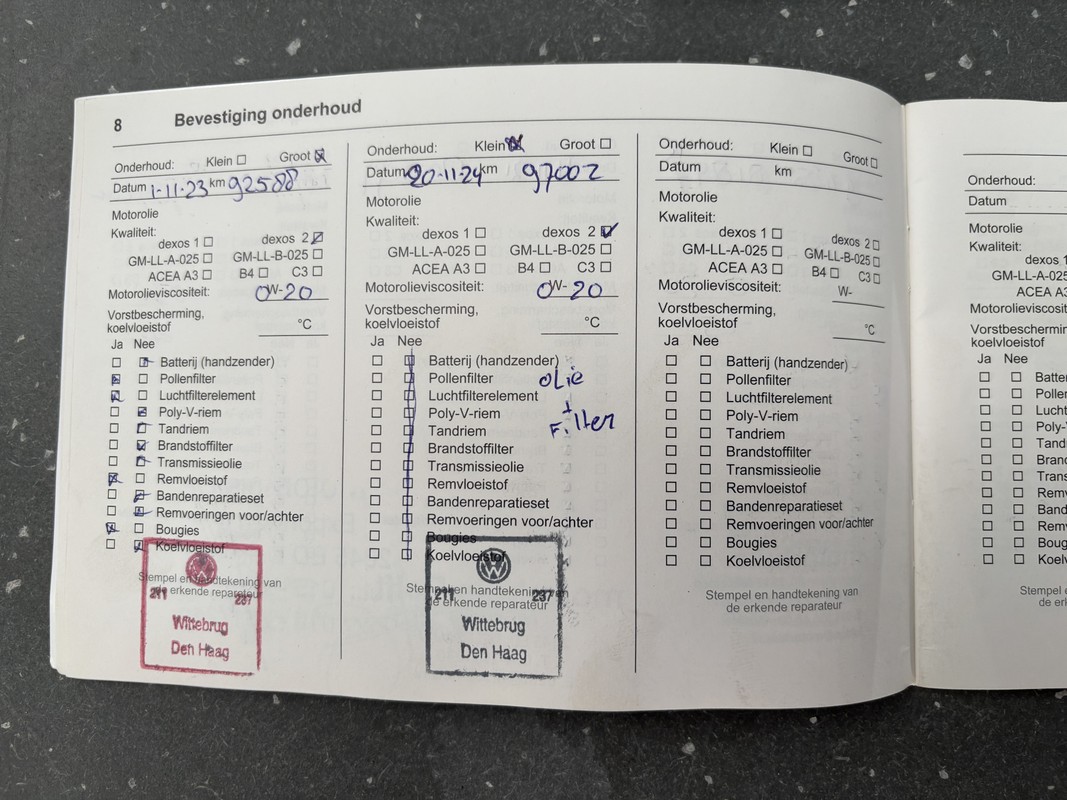 8 Bevestiging onderhoud
Onderhoud: Klein ☐ Groot ☒
Datum 1-11-23 km 92588
Motorolie
Kwaliteit:
dexos 1 ☐ dexos 2 ☑
GM-LL-A-025 ☐ GM-LL-B-025 ☐
ACEA A3 ☐ B4 ☐ C3 ☐
Motorolieviscositeit: 0W-20
Vorstbescherming,
koelvloeistof °C
Ja Nee
☐ ☑ Batterij (handzender)
☑ ☐ Pollenfilter
☑ ☐ Luchtfilterelement
☐ ☑ Poly-V-riem
☐ ☑ Tandriem
☐ ☑ Brandstoffilter
☐ ☑ Transmissieolie
☑ ☐ Remvloeistof
☐ ☑ Bandenreparatieset
☐ ☑ Remvoeringen voor/achter
☑ ☐ Bougies
☐ ☑ Koelvloeistof
Stempel en handtekening van
de erkende reparateur
211 237
Wittebrug
Den Haag
Onderhoud: Klein ☒ Groot ☐
Datum 20-11-24 km 97002
Motorolie
Kwaliteit:
dexos 1 ☐ dexos 2 ☑
GM-LL-A-025 ☐ GM-LL-B-025 ☐
ACEA A3 ☐ B4 ☐ C3 ☐
Motorolieviscositeit: 0W-20
Vorstbescherming,
koelvloeistof °C
Ja Nee
☐ ☐ Batterij (handzender)
☐ ☐ Pollenfilter olie
☐ ☐ Luchtfilterelement +
☐ ☐ Poly-V-riem Filter
☐ ☐ Tandriem
☐ ☐ Brandstoffilter
☐ ☐ Transmissieolie
☐ ☐ Remvloeistof
☐ ☐ Bandenreparatieset
☐ ☐ Remvoeringen voor/achter
☐ ☐ Bougies
☐ ☐ Koelvloeistof
Stempel en handtekening van
de erkende reparateur
211 237
Wittebrug
Den Haag
Onderhoud: Klein ☐ Groot ☐
Datum km
Motorolie
Kwaliteit:
dexos 1 ☐ dexos 2 ☐
GM-LL-A-025 ☐ GM-LL-B-025 ☐
ACEA A3 ☐ B4 ☐ C3 ☐
Motorolieviscositeit: W-
Vorstbescherming,
koelvloeistof °C
Ja Nee
☐ ☐ Batterij (handzender)
☐ ☐ Pollenfilter
☐ ☐ Luchtfilterelement
☐ ☐ Poly-V-riem
☐ ☐ Tandriem
☐ ☐ Brandstoffilter
☐ ☐ Transmissieolie
☐ ☐ Remvloeistof
☐ ☐ Bandenreparatieset
☐ ☐ Remvoeringen voor/achter
☐ ☐ Bougies
☐ ☐ Koelvloeistof
Stempel en handtekening van
de erkende reparateur
Onderhoud:
Datum
Motorolie
Kwaliteit:
dexos 1
GM-LL-A-025
ACEA A3
Motorolieviscosit
Vorstbescherming
koelvloeistof
Ja Nee
☐ ☐ Batte
☐ ☐ Poller
☐ ☐ Lucht
☐ ☐ Poly-
☐ ☐ Tand
☐ ☐ Bran
☐ ☐ Trans
☐ ☐ Remv
☐ ☐ Band
☐ ☐ Remv
☐ ☐ Boug
☐ ☐ Koelv
Stempel e
de erk